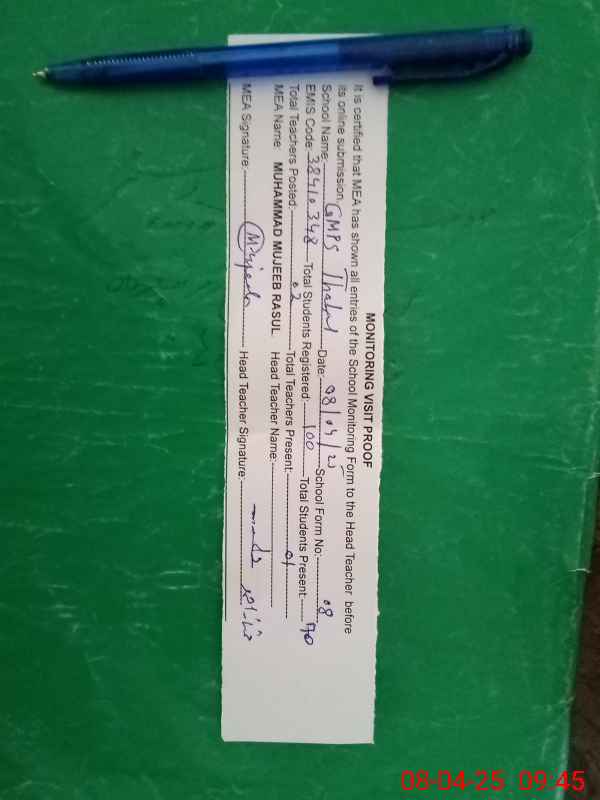 MONITORING VISIT PROOF
It is certified that MEA has shown all entries of the School Monitoring Form to the Head Teacher before
its online submission.
School Name: GMPS Date: 08/04/25 School Form No: 08
EMIS Code: 38410348 Total Students Registered: 100 Total Students Present: 70
Total Teachers Posted: 02 Total Teachers Present: 01
MEA Name: MUHAMMAD MUJEEB RASUL Head Teacher Name:
MEA Signature: Mujeeb Head Teacher Signature:
08-04-25 09:45